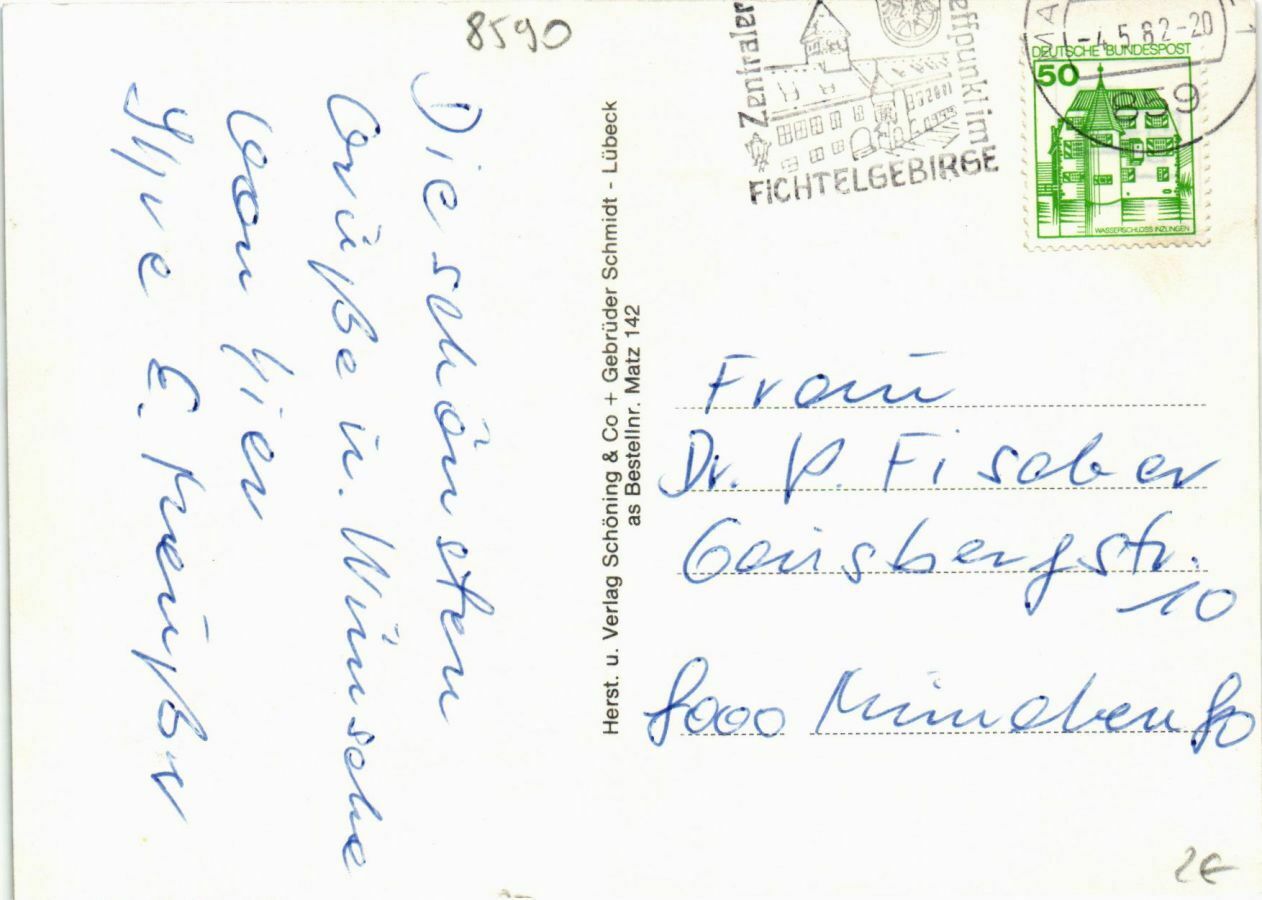 8590
Die schönsten
Grüße u. Wünsche
von hier
Ihre E.
Herst. u. Verlag Schöning & Co + Gebrüder Schmidt - Lübeck
as Bestellnr. Matz 142
Zentraler
Treffpunkt im
FICHTELGEBIRGE
-4.5.82-20
859
DEUTSCHE BUNDESPOST
50
WASSERSCHLOSS INZLINGEN
Frau
Dr. P. Fischer
Gaisbergstr.
10
8000 München 80
2€